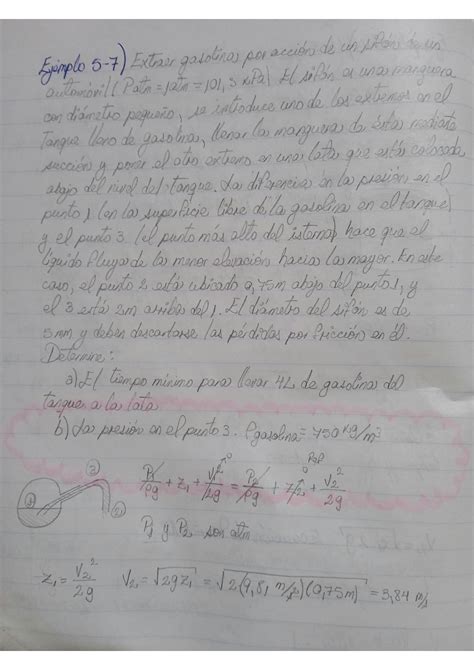 Ejemplo 5-7) Extraer gasolina por acción de un sifón de un
automóvil (Patm = 1atm = 101,3 kPa) El sifón es una manguera
con diámetro pequeño, se introduce uno de los extremos en el
tanque lleno de gasolina, llenar la manguera de ésta mediante
succión y poner el otro extremo en una lata que está colocada
abajo del nivel del tanque. La diferencia en la presión en el
punto 1 (en la superficie libre de la gasolina en el tanque)
y el punto 3 (el punto más alto del sistema) hace que el
líquido fluya de la menor elevación hacia la mayor. En este
caso, el punto 2 está ubicado 0,75m abajo del punto 1, y
el 3 está 2m arriba del 1. El diámetro del sifón es de
5mm y deben descartarse las pérdidas por fricción en él.
Determine:
a) El tiempo mínimo para llenar 4L de gasolina del
tanque a la lata
b) La presión en el punto 3. ρgasolina = 750 kg/m³
① ③ ②
P1/ρg + z1 + V1²/2g = P2/ρg + z2 + V2²/2g
P1 y P2 son atm
z1 = V2²/2g V2 = √2gz1 = √2(9,81 m/s²)(0,75m) = 3,84 m/s